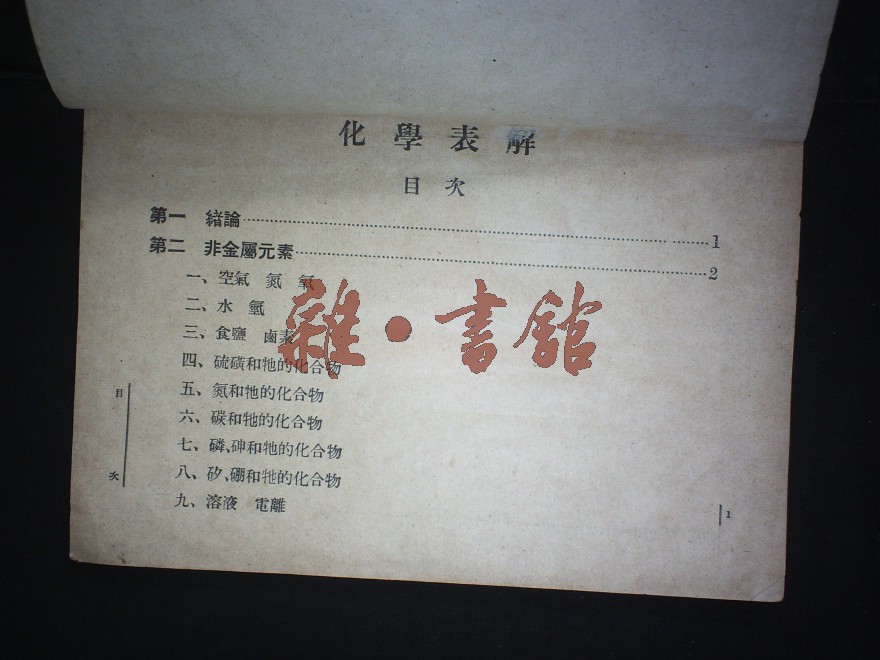 化學表解
目次
第一 緒論……1
第二 非金屬元素……2
一、空氣 氮 氧
二、水 氫
三、食鹽 鹵素
四、硫磺和牠的化合物
五、氮和牠的化合物
六、碳和牠的化合物
七、磷、砷和牠的化合物
八、矽、硼和牠的化合物
九、溶液 電離
目次
1
雜·書舘